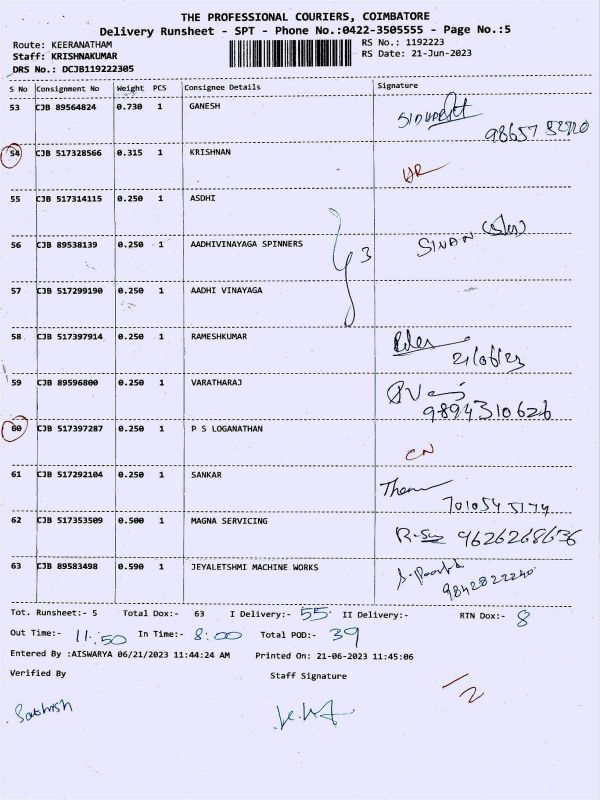 THE PROFESSIONAL COURIERS, COIMBATORE
Delivery Runsheet - SPT - Phone No.:0422-3505555 - Page No.:5
Route: KEERANATHAM
RS No.: 1192223
Staff: KRISHNAKUMAR
RS Date: 21-Jun-2023
DRS No.: DCJB119222305
S No Consignment No Weight PCS Consignee Details Signature
53 CJB 89564824 0.730 1 GANESH
54 CJB 517328566 0.315 1 KRISHNAN
55 CJB 517314115 0.250 1 ASDHI
56 CJB 89538139 0.250 1 AADHIVINAYAGA SPINNERS 3 SINAN
57 CJB 517299190 0.250 1 AADHI VINAYAGA
58 CJB 517397914 0.250 1 RAMESHKUMAR 21/06/23
59 CJB 89596800 0.250 1 VARATHARAJ 9894310626
60 CJB 517397287 0.250 1 P S LOGANATHAN CN
61 CJB 517292104 0.250 1 SANKAR
62 CJB 517353509 0.500 1 MAGNA SERVICING 9626268636
63 CJB 89583498 0.590 1 JEYALETSHMI MACHINE WORKS 9842822240
Tot. Runsheet:- 5 Total Dox:- 63 I Delivery:- 55 II Delivery:- RTN Dox:- 8
Out Time:- 11.50 In Time:- 8:00 Total POD:- 39
Entered By :AISWARYA 06/21/2023 11:44:24 AM Printed On: 21-06-2023 11:45:06
Verified By Staff Signature
Sathish